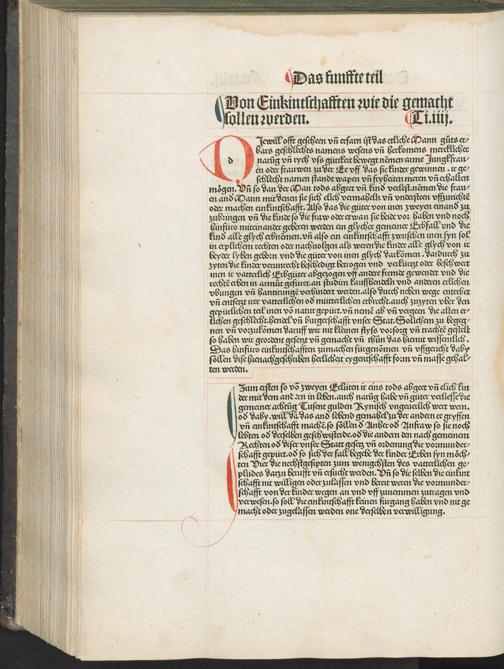 Das funffte teil
Von Einkintschafften wie die gemacht
sollen werden. Ti.iiij.
d
Jewill offt gescheen vñ erfarn ist das etliche Mann gůts er
bars geschlechts namens wesens vñ herkomens mercklicher
narũg vñ rych vß gůtikeit bewegt nemen arme Jungkfrau
en oder frauwen zu der Ee vff das sie kinder gewinnen . ir ge
schlecht namen standt wapen vñ fryheiten meren vñ erhalten
mögen. Vñ so dan der Man tods abget vñ kind verleßt. nemen die frau
en and Mann mit denen sie sich elich vermaheln vñ vndersteen vffzurichtē
oder machen einkintschafft. Also das die gůter von inen zweyen einand zu
zubringen vñ die kinde so die fraw oder etwan sie beide vor haben vnd noch
hinfůro miteinander geberen werden ein glycher gemeiner Erbfall vnd die
kind alle glych erb nemen. vñ also ein einkintschafft zwüschen inen syn sol
in erplichem rechten oder nachuolgen als weren die kinder alle glych von ir
beyder lyben geborn vnd die gůter von inen glych darkomen. dardurch zu
zyten die kinder verunrecht beschedigt betrogen vnd verkürtzt oder beschwert
inen ir vatterlich Erbgůter abgezogen vff ander fremde gewendt vnd die
rechtē erben in armůt gesürt. an studiu kauffhendeln vnd andern erlichen
vbungen vñ hantirunge verhindert werden. also durch neben wege enterbet
vñ entsetzt irer vatterlichen od můtterlichen erbrecht. auch zuzyten vber den
gepürlichen teil inen võ natur gepürt. vñ nemē ab vñ vergeen. die alten er
lichen geschlecht. hendel vñ burgerschafft vnser Stat. Sollichem zu begeg
nen vñ vorzukomen
so haben wir geordent gesetzt vñ gemacht vñ thůn das hiemit wissentlich.
Das hinfůro einkintschafften zumachen fürgenōmen vñ vffgericht. daby
sollen dise hernachgeschriben herlicheit eygentschafft form vñ masse gehal
ten werden.
Zum ersten so võ zweyen Eelüten ir eins tods abget vñ elich kin
der mit dem andern im leben. auch narũg habe vñ gůter verliesse die
gemeiner achtũg Tusent gulden Rynisch vngeuerlich wert wern.
od daby. will dã das and lebend gemahel zu der andern ee gryffen
vñ einkintschafft machē. so sollen d Anher od Anfraw so sie noch
lebten od derselben geschwisterde. od die andern den nach gemeinem
Rechten od diser vnser Statt gesetz vñ ordenung die vormunder
schafft gepürt. od so sich der fall begebe der kinder Erben syn möch
ten Vier die nechstgesipten zum wenigchsten des vatterlichen ge
plůds darzu berüfft vñ ersücht werden. Vñ so die selben die einkint
schafft nit willigen oder zulassen vnd bereit weren die vormunder
schafft von der kinder wegen an vnd vff zunemmen zutragen vnd
verwesen. so soll die einkintschafft keinen fürgang haben vnd nit ge
macht oder zugelassen werden one derselben verwilligung.